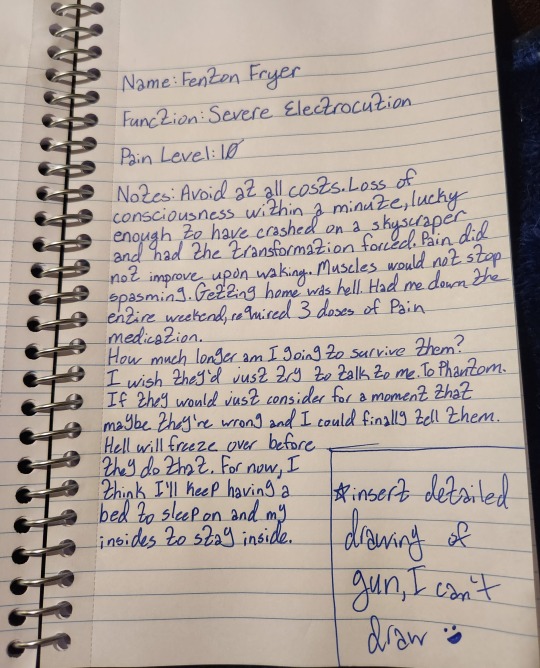 Name: Fenton Fryer
Function: Severe Electrocution
Pain Level: 10
Notes: Avoid at all costs. Loss of
consciousness within a minute, lucky
enough to have crashed on a skyscraper
and had the transformation forced. Pain did
not improve upon waking. Muscles would not stop
spasming. Getting home was hell. Had me down the
entire weekend, required 3 doses of Pain
medication.
How much longer am I going to survive them?
I wish they'd just try to talk to me. To Phantom.
If they would just consider for a moment that
maybe they're wrong and I could finally tell them.
Hell will freeze over before
they do that. For now, I
think I'll keep having a
bed to sleep on and my
insides to stay inside.
*insert detailed
drawing of
gun, I can't
draw :)